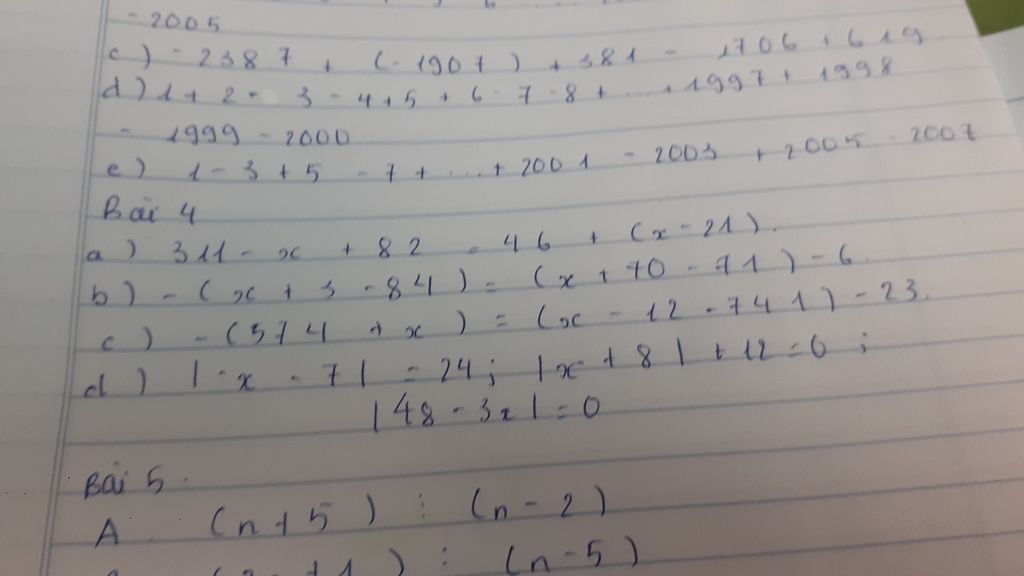 - 2005
c) - 2387 + (-1907) + 381 - 1706 + 619
d) 1 + 2 - 3 - 4 + 5 + 6 - 7 - 8 + ... + 1997 + 1998
- 1999 - 2000
e) 1 - 3 + 5 - 7 + ... + 2001 - 2003 + 2005 - 2007
Bài 4
a) 311 - x + 82 = 46 + (x - 21).
b) - (x + 3 - 84) = (x + 70 - 71) - 6
c) - (574 + x) = (x - 12 - 741) - 23.
d) |-x - 7| = 24; |x + 8| + 12 = 0;
|48 - 3x| = 0
Bài 5.
A. (n + 5) : (n - 2)
+ 1) : (n - 5)